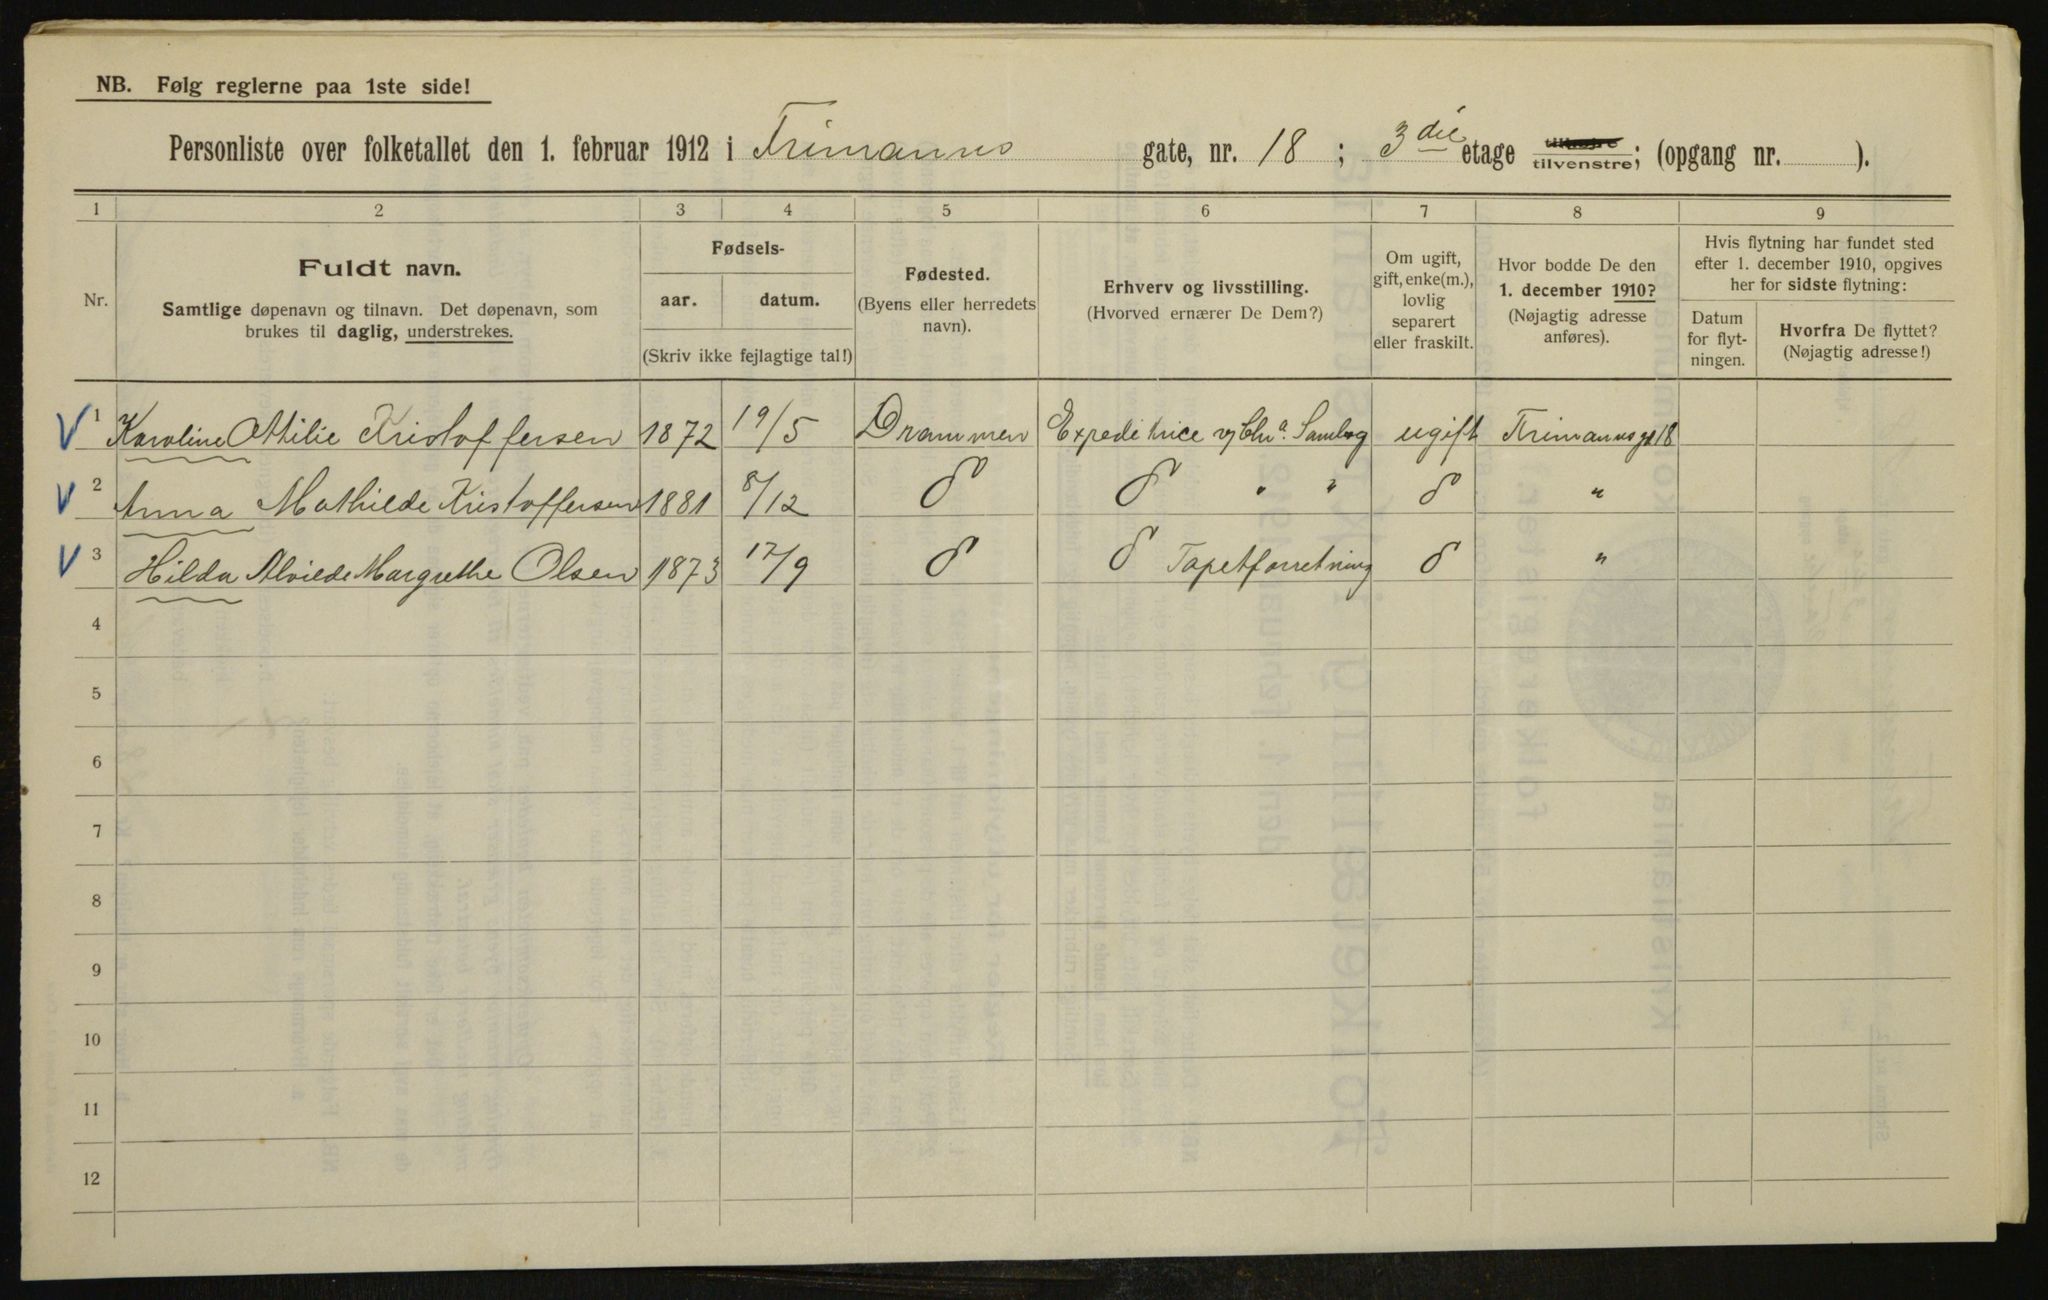 NB. Følg reglerne paa 1ste side!
Personliste over folketallet den 1. februar 1912 i Frimanns gate, nr. 18 ; 3die etage tilhøjre tilvenstre; (opgang nr. ).
1 2 3 4 5 6 7 8 9
Nr.
Fuldt navn.
Samtlige døpenavn og tilnavn. Det døpenavn, som
brukes til daglig, understrekes.
Fødsels-
aar. datum.
(Skriv ikke fejlagtige tal!)
Fødested.
(Byens eller herredets
navn).
Erhverv og livsstilling.
(Hvorved ernærer De Dem?)
Om ugift,
gift, enke(m.),
lovlig
separert
eller fraskilt.
Hvor bodde De den
1. december 1910?
(Nøjagtig adresse
anføres).
Hvis flytning har fundet sted
efter 1. december 1910, opgives
her for sidste flytning:
Datum
for flyt-
ningen.
Hvorfra De flyttet?
(Nøjagtig adresse!)
V 1 Karoline Ottilie Kristoffersen 1872 19/5 Drammen Expeditrice ugift Frimannsgt 18
V 2 Anna Mathilde Kristoffersen 1881 8/12 do do " " do "
V 3 Hilda Alvilde Margrethe Olsen 1873 17/9 do do Tapetforretning do "
4
5
6
7
8
9
10
11
12